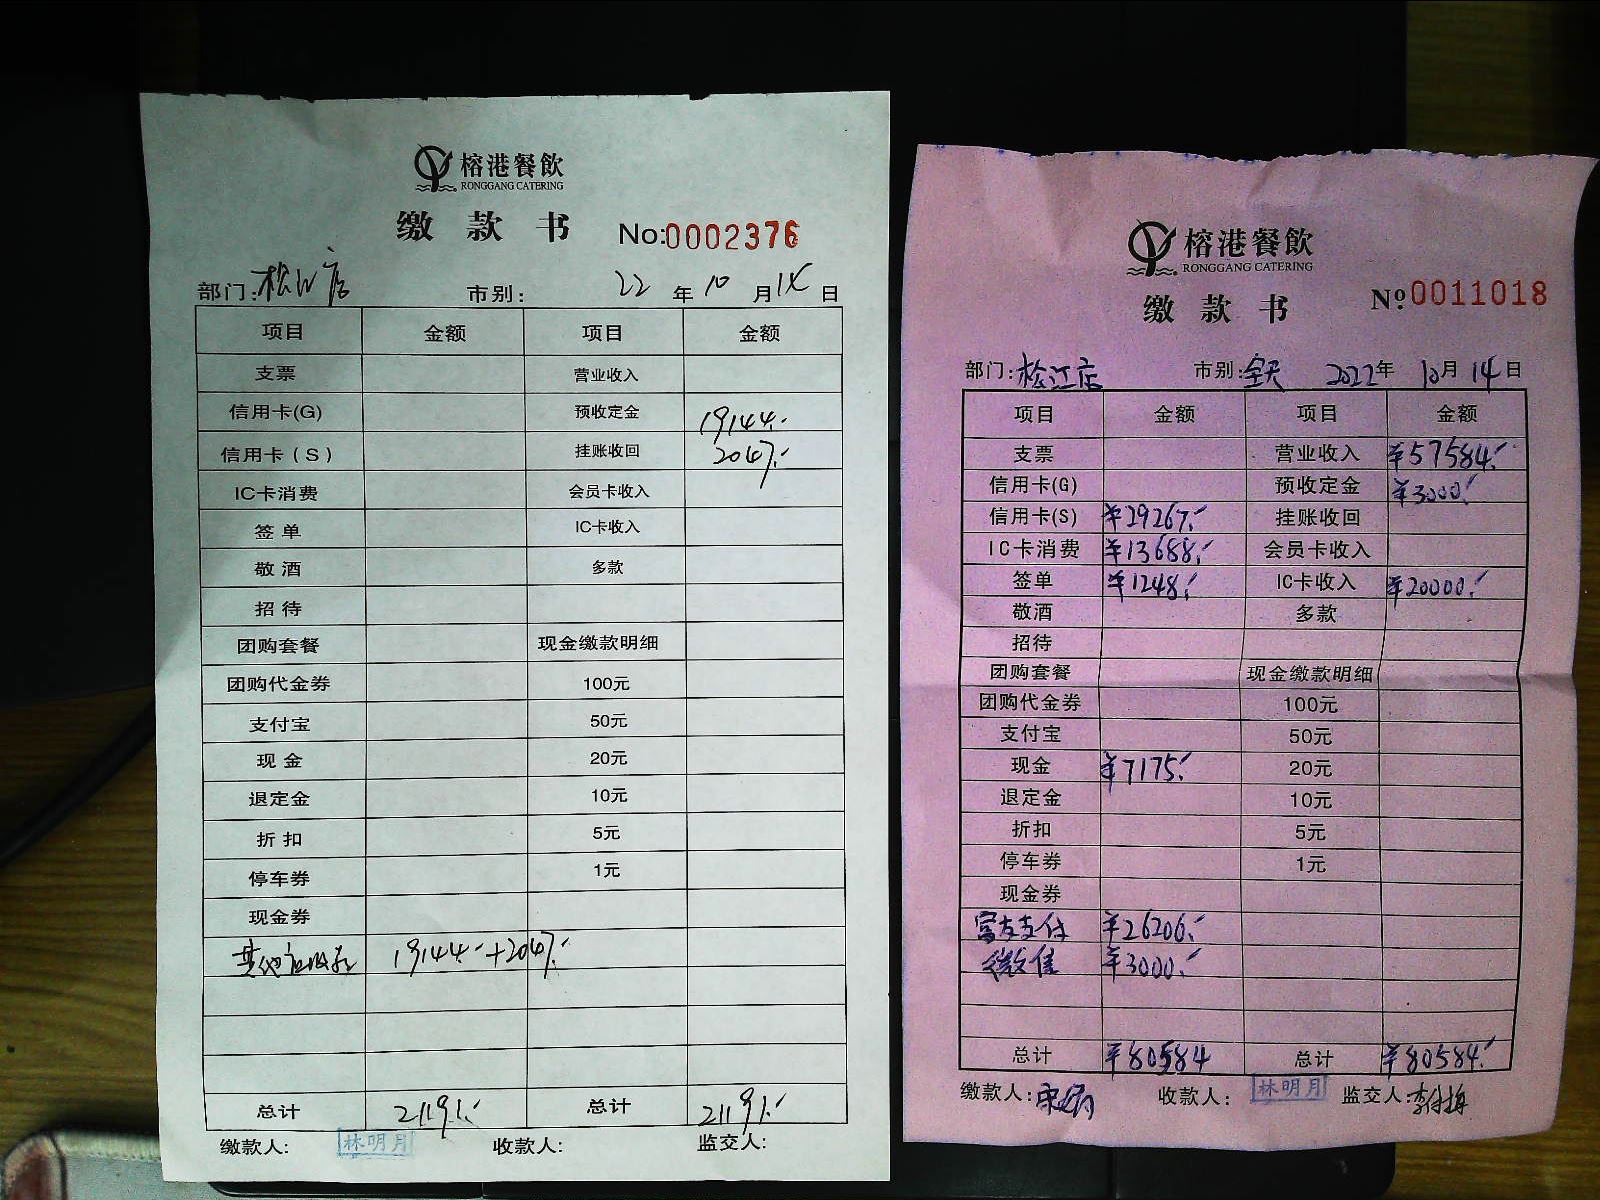 榕港餐飲
RONGGANG CATERING
缴款书 No:0002376
部门:松江店 市别: 22年10月14日
项目 金额 项目 金额
支票 营业收入
信用卡(G) 预收定金 19144.-
信用卡(S) 挂账收回 2047.-
IC卡消费 会员卡收入
签单 IC卡收入
敬酒 多款
招待
团购套餐 现金缴款明细
团购代金券 100元
支付宝 50元
现金 20元
退定金 10元
折扣 5元
停车券 1元
现金券
其他应收款 19144.-+2047.-
总计 21191.- 总计 21191.-
缴款人: 林明月 收款人: 监交人:
榕港餐飲
RONGGANG CATERING
缴款书 No0011018
部门:松江店 市别:全天 2022年10月14日
项目 金额 项目 金额
支票 营业收入 ¥57584.-
信用卡(G) 预收定金 ¥3000.-
信用卡(S) ¥29267.- 挂账收回
IC卡消费 ¥13688.- 会员卡收入
签单 ¥1248.- IC卡收入 ¥20000.-
敬酒 多款
招待
团购套餐 现金缴款明细
团购代金券 100元
支付宝 50元
现金 ¥7175.- 20元
退定金 10元
折扣 5元
停车券 1元
现金券
富友支付 ¥26206.-
微信 ¥3000.-
总计 ¥80584 总计 ¥80584.-
缴款人: 收款人: 林明月 监交人: